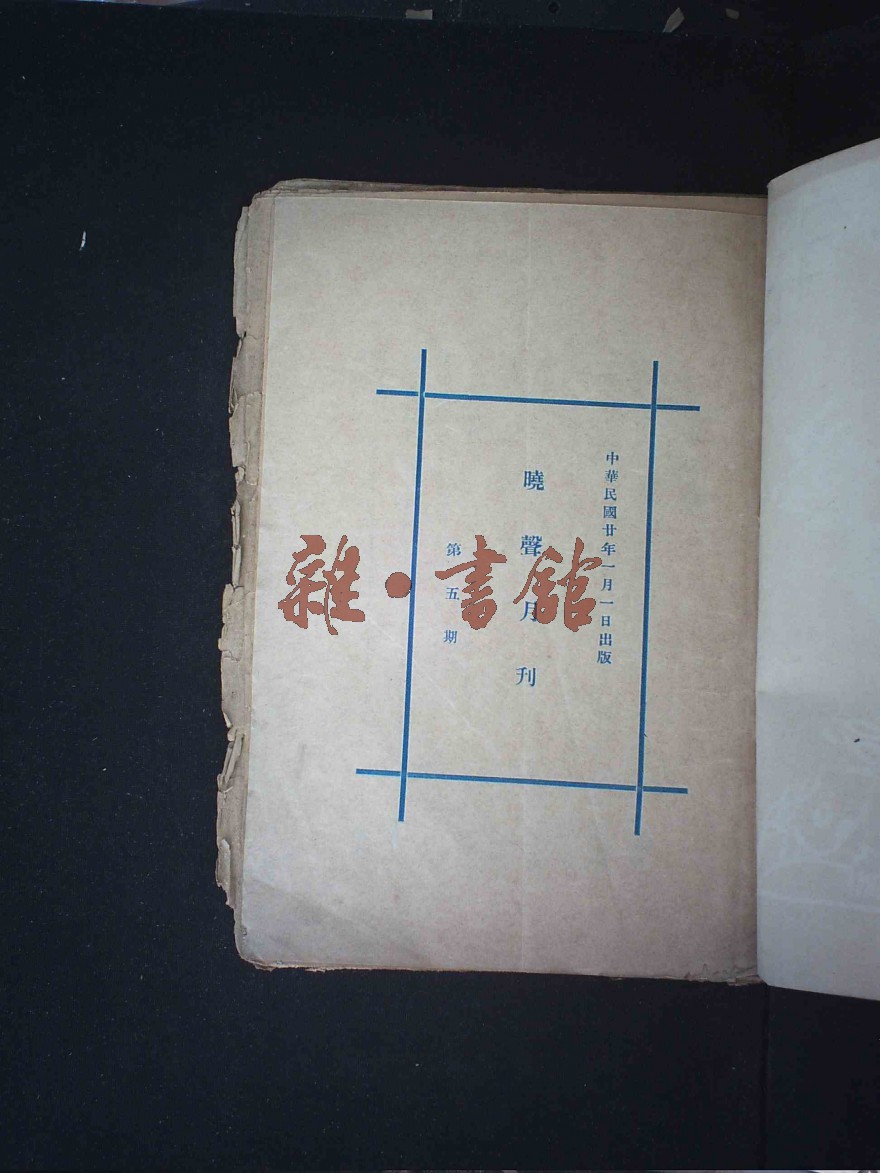 中華民國廿年一月一日出版
曉聲月刊
第五期
雜·書館